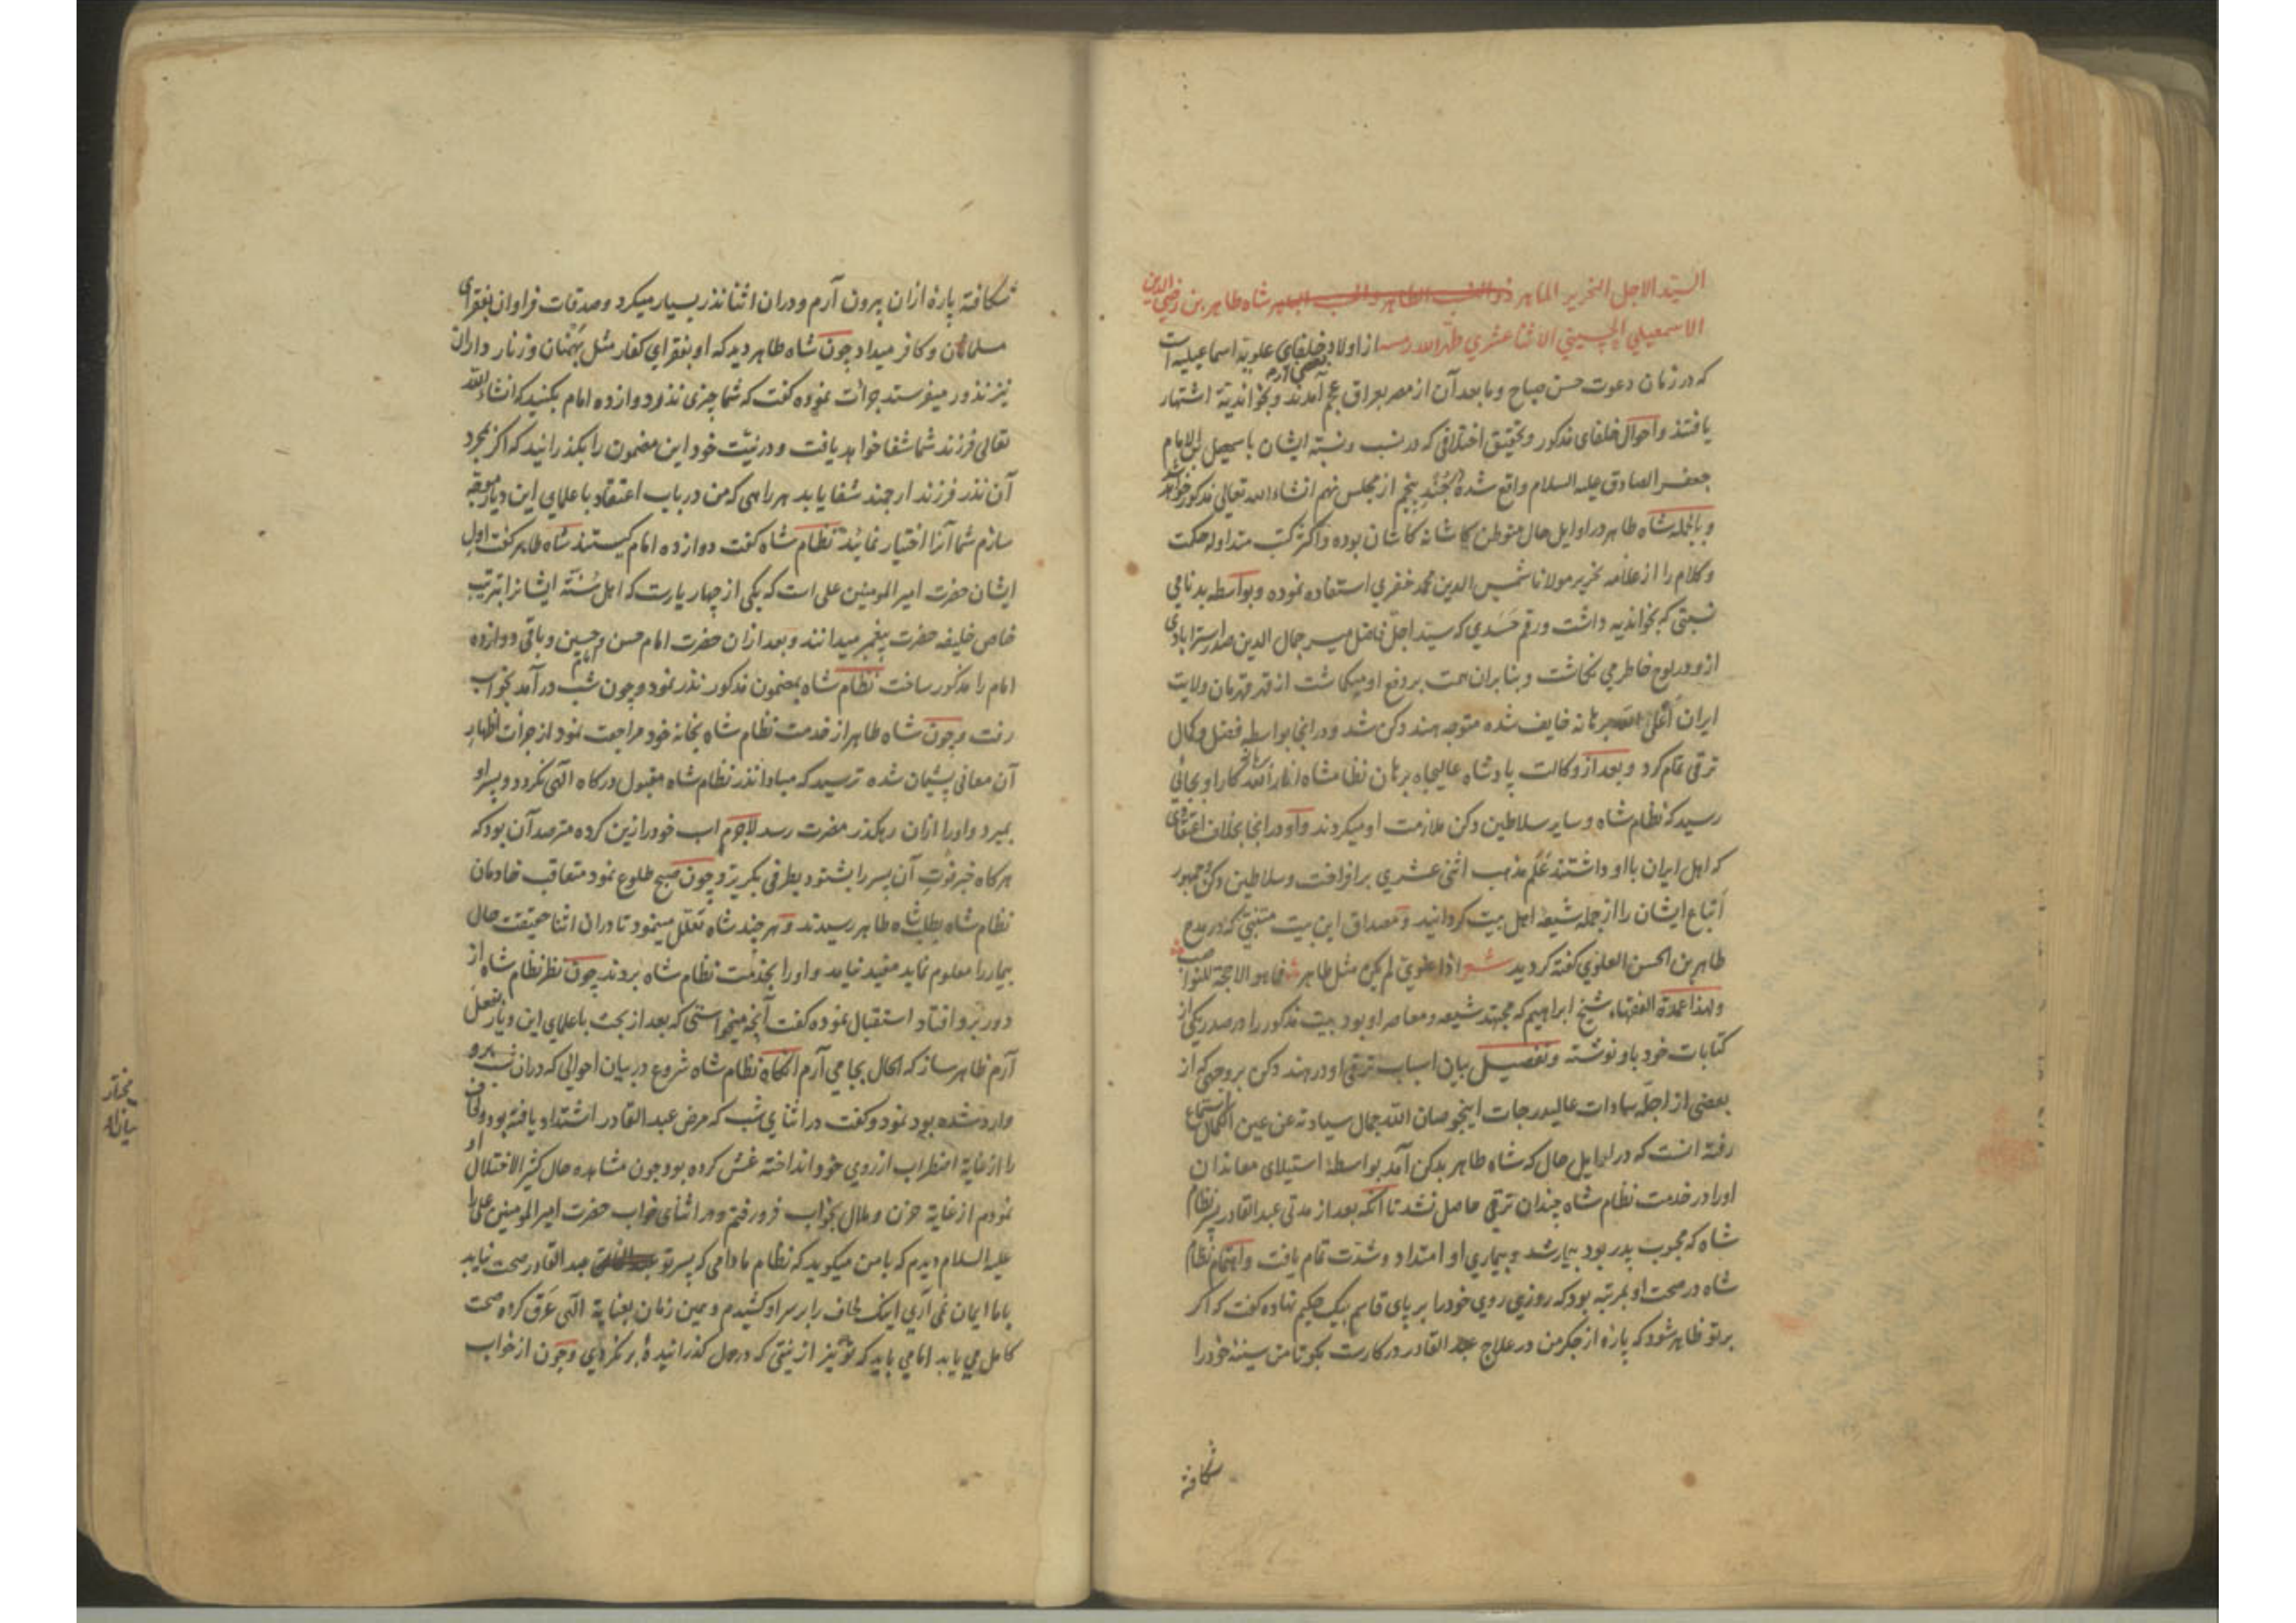 السید الاجل النحریر الماهر ذو النسب الطاهر و الحسب الباهر شاه طاهر بن رضی الدین
الاسمعیلی الحسینی الاثنا عشری طهر الله رمسه از اولاد خلفای علویه اسماعیلیه است
که در زمان دعوت حسن صباح و ما بعد آن از مصر بعراق عجم آمدند و بخواندیه اشتهار
یافتند و احوال خلفای مذکور و تحقیق اختلافی که در نسب و نسبة ایشان باسمعیل بن الامام
جعفر الصادق علیه السلام واقع شده در جند پنجم از مجلس نهم انشاء الله تعالی مذکور خواهد شد
و بالجمله شاه طاهر در اوایل حال متوطن کاشانه کاشان بوده و اکثر کتب متداوله حکمت
و کلام را از علامه نحریر مولانا شمس الدین محمد خفری استفاده نموده و بواسطه بدنامی
نسبتی که بخواندیه داشت و رقم حسدی که سید اجل فاضل میر جمال الدین صدر استرابادی
ازو در لوح خاطر می نکاشت و بنا بران همت بر دفع او میکماشت از قهر قهرمان ولایت
ایران خایف شده متوجه هند دکن شد و در انجا بواسطه فضل و کمال
ترقی تمام کرد و بعد از وکالت پادشاه عالیجاه برهان نظامشاه انار الله برهانه کار او بجائی
رسید که نظام شاه و سایر سلاطین دکن ملازمت او میکردند و او در انجا بخلاف اعتقادی
که اهل ایران باو داشتند علم مذهب اثنی عشری بر افراخت و سلاطین دکن و جمهور
اتباع ایشان را از جمله شیعه اهل بیت کردانید و مصداق این بیت متنبی که در مدح
طاهر بن الحسن العلوی گفته کردید شعر اذا علوی لم یکن مثل طاهر فما هو الا حجة للنواصب
و لهذا عمدة الفقهاء شیخ ابراهیم که مجتهد شیعه و معاصر او بود بیت مذکور را در صدر یکی از
کتابات خود باو نوشته و تفصیل بیان اسباب ترقی او در هند دکن بر وجهی که از
بعضی از اجله سادات عالیدرجات اینجو صان الله جمال سیادته عن عین الکمال استماع
رفته انست که در اوایل حال که شاه طاهر بدکن آمد بواسطه استیلای معاندان
اورا در خدمت نظام شاه چندان ترقی حاصل نشد تا انکه بعد از مدتی عبد القادر پسر نظام
شاه که محبوب پدر بود بیمار شد و بیماری او امتداد و شدت تمام یافت و اهتمام نظام
شاه در صحت او بمرتبه بود که روزی روی خود را بر پای قاسم بیک حکیم نهاده کفت که اگر
بر تو ظاهر شود که پاره از جکر من در علاج عبد القادر در کارست بکو تا من سینه خود را
شکافته
شکافته پاره ازان بیرون آرم و دران اثنا نذر بسیار میکرد و صدقات فراوان بفقرای
مسلمانان و کافر میداد چون شاه طاهر دید که او بفقرای کفار مثل برهمنان و زنار داران
نیز نذور میفرستد جرأت نموده کفت که شما چیزی نذر دوازده امام بکنید که انشاء الله
تعالی فرزند شما شفا خواهد یافت و در نیت خود این مضمون را بگذرانید که اکر بمجرد
آن نذر فرزند ارجمند شفا یابد هر راهی که من در باب اعتقاد با علمای این دیار موجه
سازم شما آنرا اختیار نمائید نظام شاه کفت دوازده امام کیستند شاه طاهر کفت اول
ایشان حضرت امیر المومنین علی است که یکی از چهار یارست که اهل سنة ایشانرا بترتیب
خاص خلیفه حضرت پیغمبر میدانند و بعد ازان حضرت امام حسن و امام حسین و باقی دوازده
امام را مذکور ساخت نظام شاه بمضمون مذکور نذر نمود و چون شب در آمد بخواب
رفت و چون شاه طاهر از خدمت نظام شاه بخانه خود مراجعت نمود از جرأت اظهار
آن معانی پشیمان شده ترسید که مبادا نذر نظام شاه مقبول درکاه الهی نکردد و پسر او
بمیرد و اورا ازان رهکذر مضرت رسد لاجرم اسب خود را زین کرده مترصد آن بود که
هر کاه خبر فوت آن پسر را بشنود بطرفی بکریزد و چون صبح طلوع نمود متعاقب خادمان
نظام شاه بطلب شاه طاهر رسیدند و هر چند شاه تعلل مینمود تا دران اثنا حقیقت حال
بیمار را معلوم نماید مفید نیاید و اورا بخدمت نظام شاه بردند چون نظر نظام شاه از
دور برو افتاد استقبال نموده کفت آنچه میخواستی که بعد از بحث با علمای این دیار بفعل
آرم ظاهر ساز که الحال بجا می آرم انکاه نظام شاه شروع در بیان احوالی که دران شب برو
وارد شده بود نمود و کفت در اثنای شب که مرض عبد القادر اشتداد یافته بود و لحاف
را از غایة اضطراب از روی خود انداخته غش کرده بود چون مشاهده حال کثیر الاختلال او
نمودم از غایة حزن و ملال بخواب فرو رفتم و در اثنای خواب حضرت امیر المومنین علی را
علیه السلام دیدم که با من میکوید که نظام مادامی که پسر تو عبد القادر صحت نیابد
با ما ایمان نمی آری اینک لحاف را بر سر او کشیدم و همین زمان بعنایة الهی عرق کرده صحت
کامل می یابد اما می باید که تو نیز از نیتی که در دل کذرانیده بر نکردی و چون از خواب